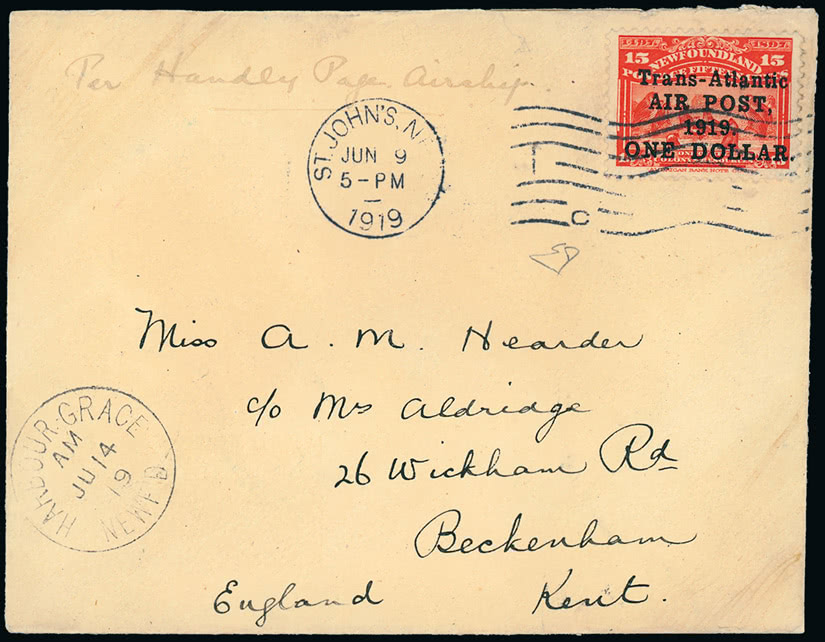 Per Handly Page Airship.
ST. JOHN'S, N
JUN 9
5-PM
1919
1897 1897
15 15
NEWFOUNDLAND
Trans-Atlantic
AIR POST,
1919.
ONE DOLLAR.
C
Miss A. M. Hearder
c/o Mrs Aldridge
26 Wickham Rd
Beckenham
England Kent.
HARBOUR·GRACE
AM
JU 14
19
NEWF'D